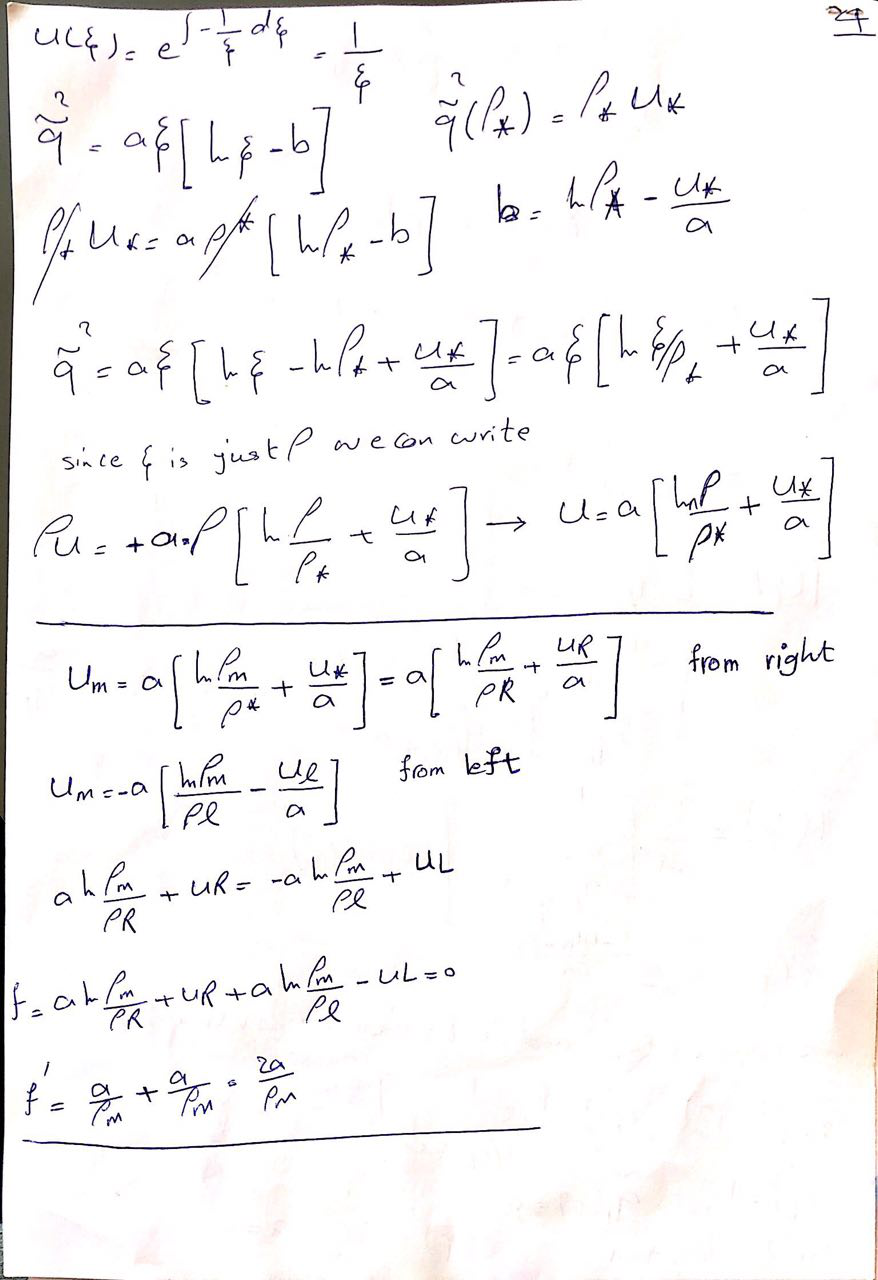 24
u(ξ) = e^{∫ -1/ξ dξ} = 1/ξ
q̃² = aξ [ln ξ - b]    q̃²(ρ_*) = ρ_* u_*
ρ_* u_* = a ρ_* [ln ρ_* - b]    b = ln ρ_* - u_*/a
q̃² = aξ [ln ξ - ln ρ_* + u_*/a] = aξ [ln ξ/ρ_* + u_*/a]
since ξ is just ρ we can write
ρu = +a·ρ [ln ρ/ρ_* + u_*/a] → u = a [ln ρ/ρ* + u_*/a]
u_m = a [ln ρ_m/ρ* + u_*/a] = a [ln ρ_m/ρR + uR/a]    from right
u_m = -a [ln ρ_m/ρℓ - uℓ/a]    from left
a ln ρ_m/ρR + uR = -a ln ρ_m/ρℓ + uL
f = a ln ρ_m/ρR + uR + a ln ρ_m/ρℓ - uL = 0
f' = a/ρ_m + a/ρ_m = 2a/ρ_m